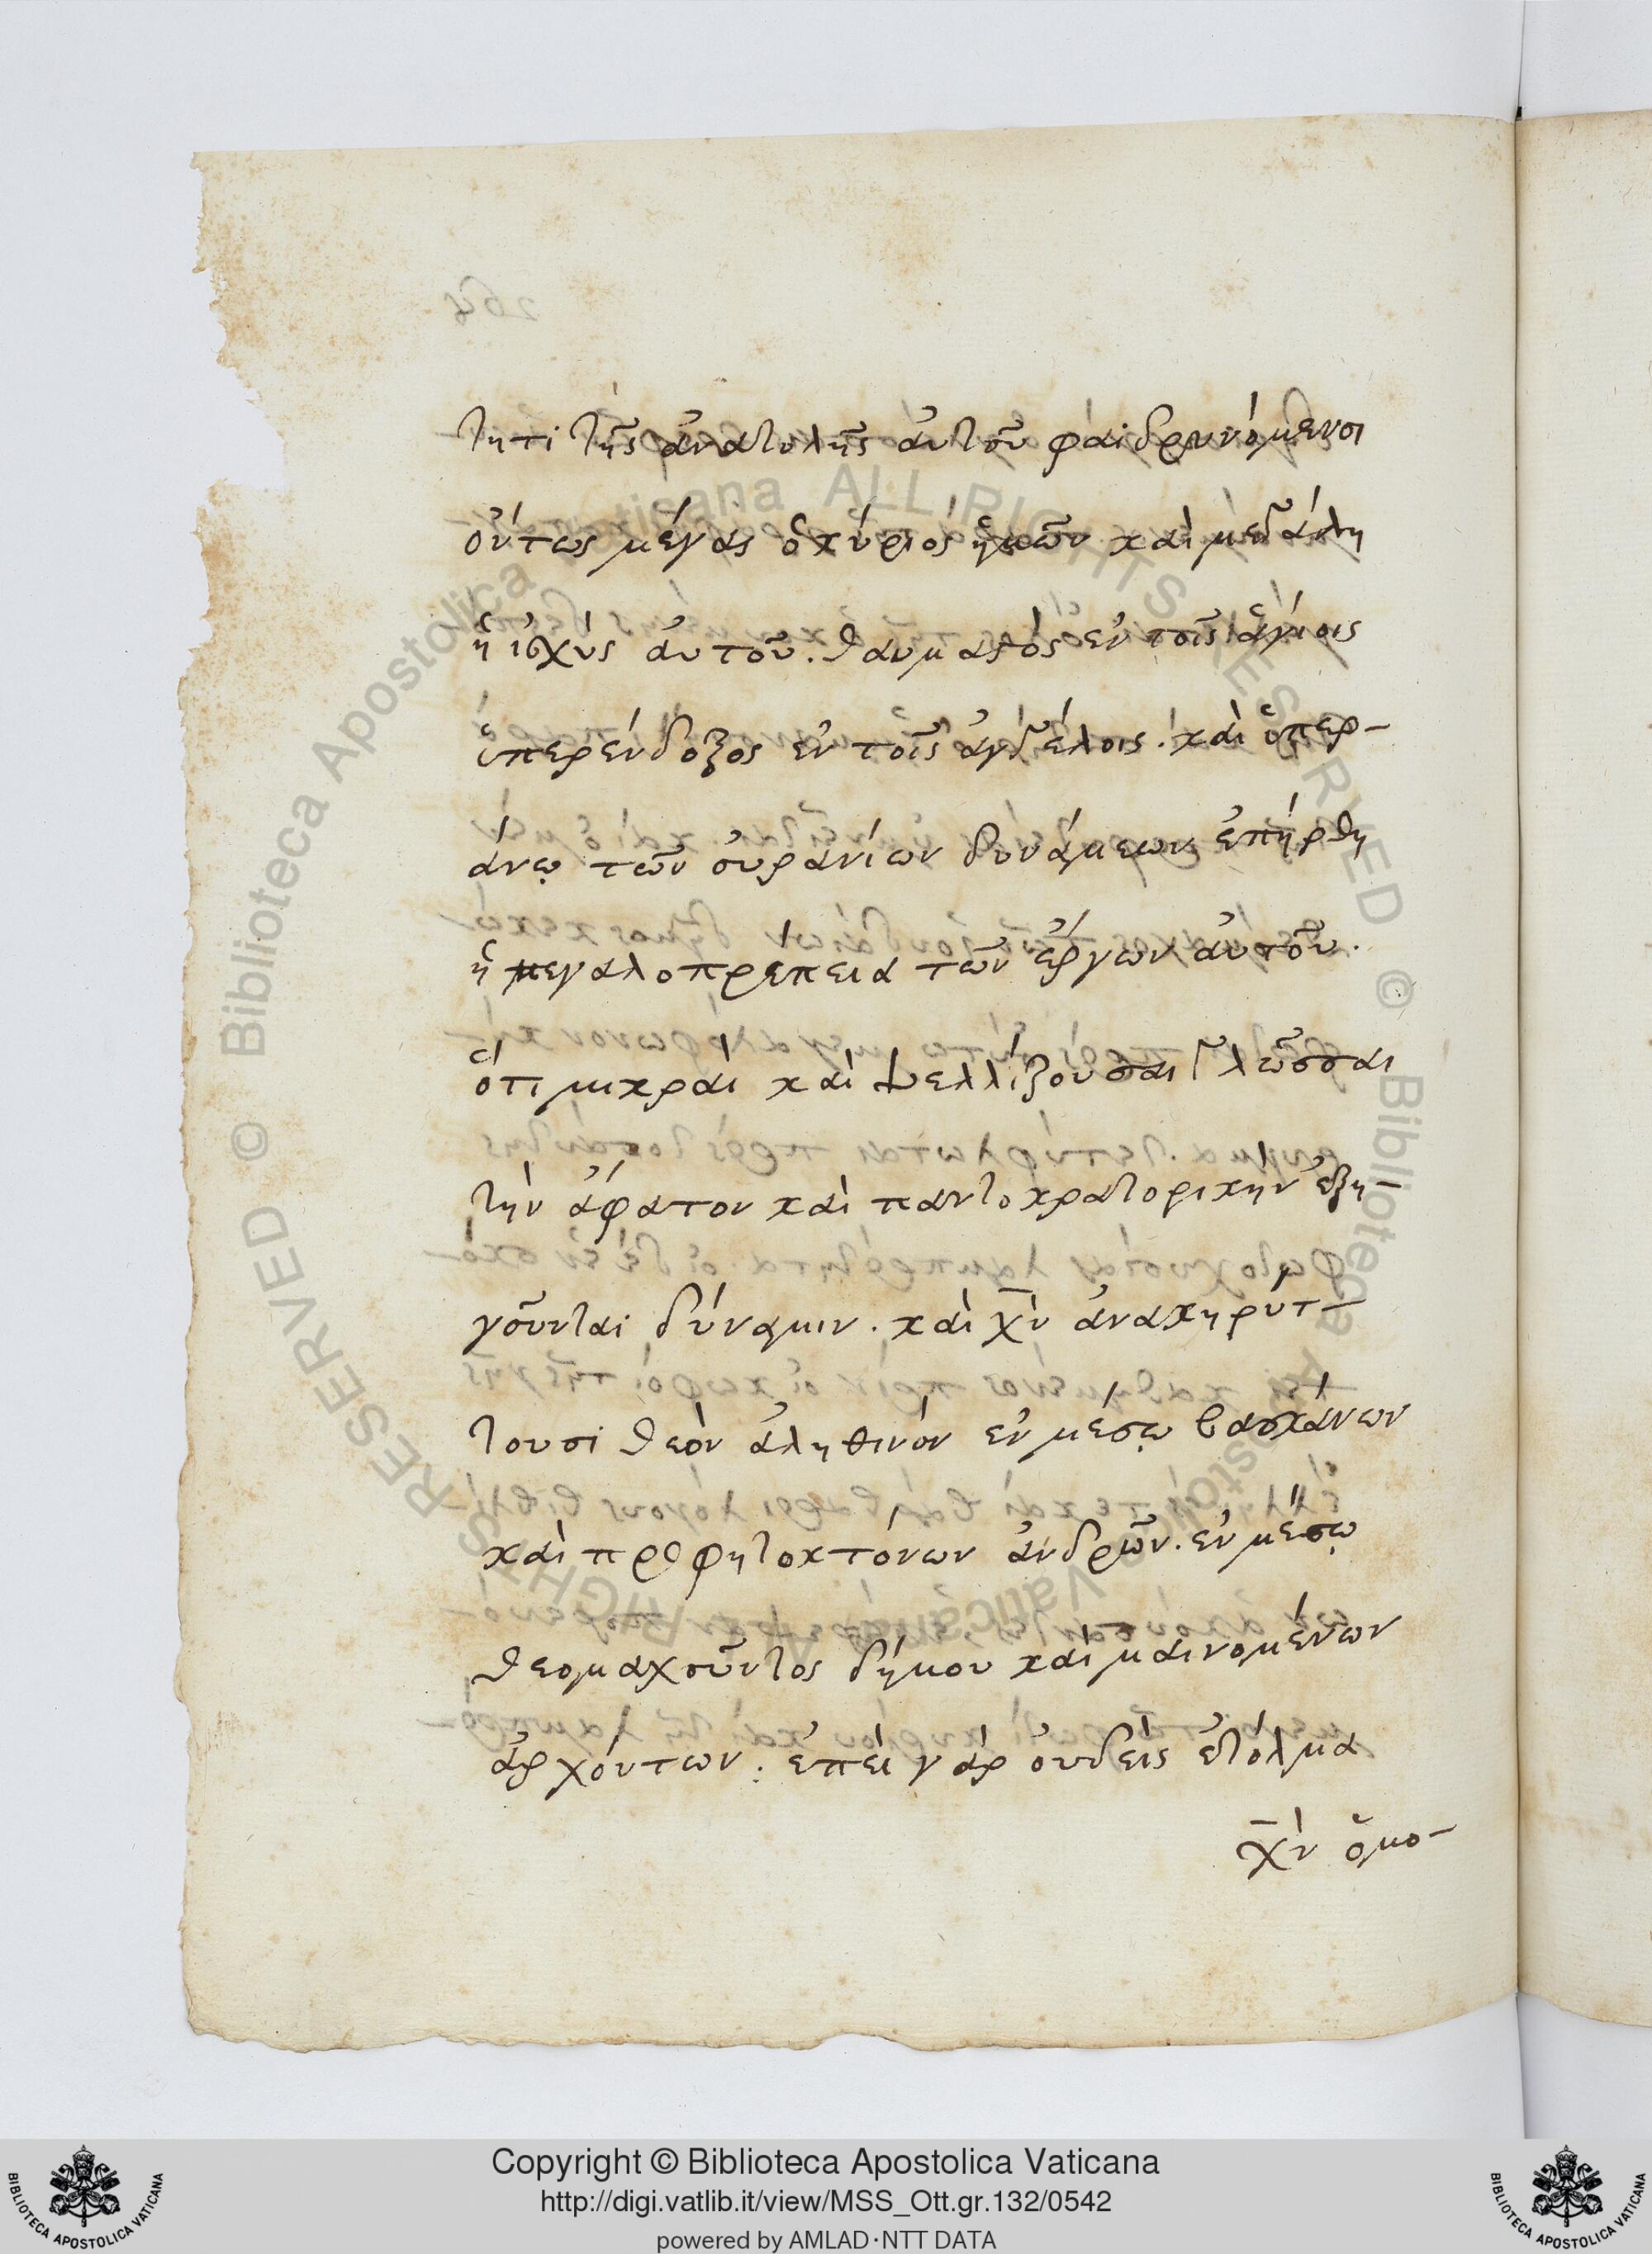 τητι τῆς ἀνατολῆς ἀυτοῦ φαιδρυνόμενοι
ὅυτως μέγας ὁ κύριός ἡμῶν καὶ μεγάλη
ἡ ἰσχὺς ἀυτοῦ. θαυμαστὸς ἐν τοῖς ἁγίοις
ὑπερένδοξος ἐν τοῖς ἀγγέλοις. καὶ ὑπερ-
άνω τῶν ὀυρανίων δυνάμεων ἐπήρθη
ἡ μεγαλοπρέπεια τῶν ἔργων ἀυτοῦ.
ὅτι μικραὶ καὶ ψελλίζουσαι γλῶσσαι
τὴν ἄφατον καὶ παντοκρατορικὴν ἐξη-
γοῦνται δύναμιν. καὶ χν̅ ἀνακηρύτ-
τουσι θεὸν ἀληθινὸν ἐν μέσῳ βασκάνων
καὶ προφητοκτόνων ἀνδρῶν. ἐν μέσῳ
θεομαχοῦντος δήμου καὶ μαινομένων
ἀρχόντων. ἐπεὶ γὰρ ὀυδεὶς ἐτόλμα
χν̅ ὁμο-
Copyright © Biblioteca Apostolica Vaticana
http://digi.vatlib.it/view/MSS_Ott.gr.132/0542
powered by AMLAD·NTT DATA
BIBLIOTECA APOSTOLICA VATICANA
BIBLIOTECA APOSTOLICA VATICANA